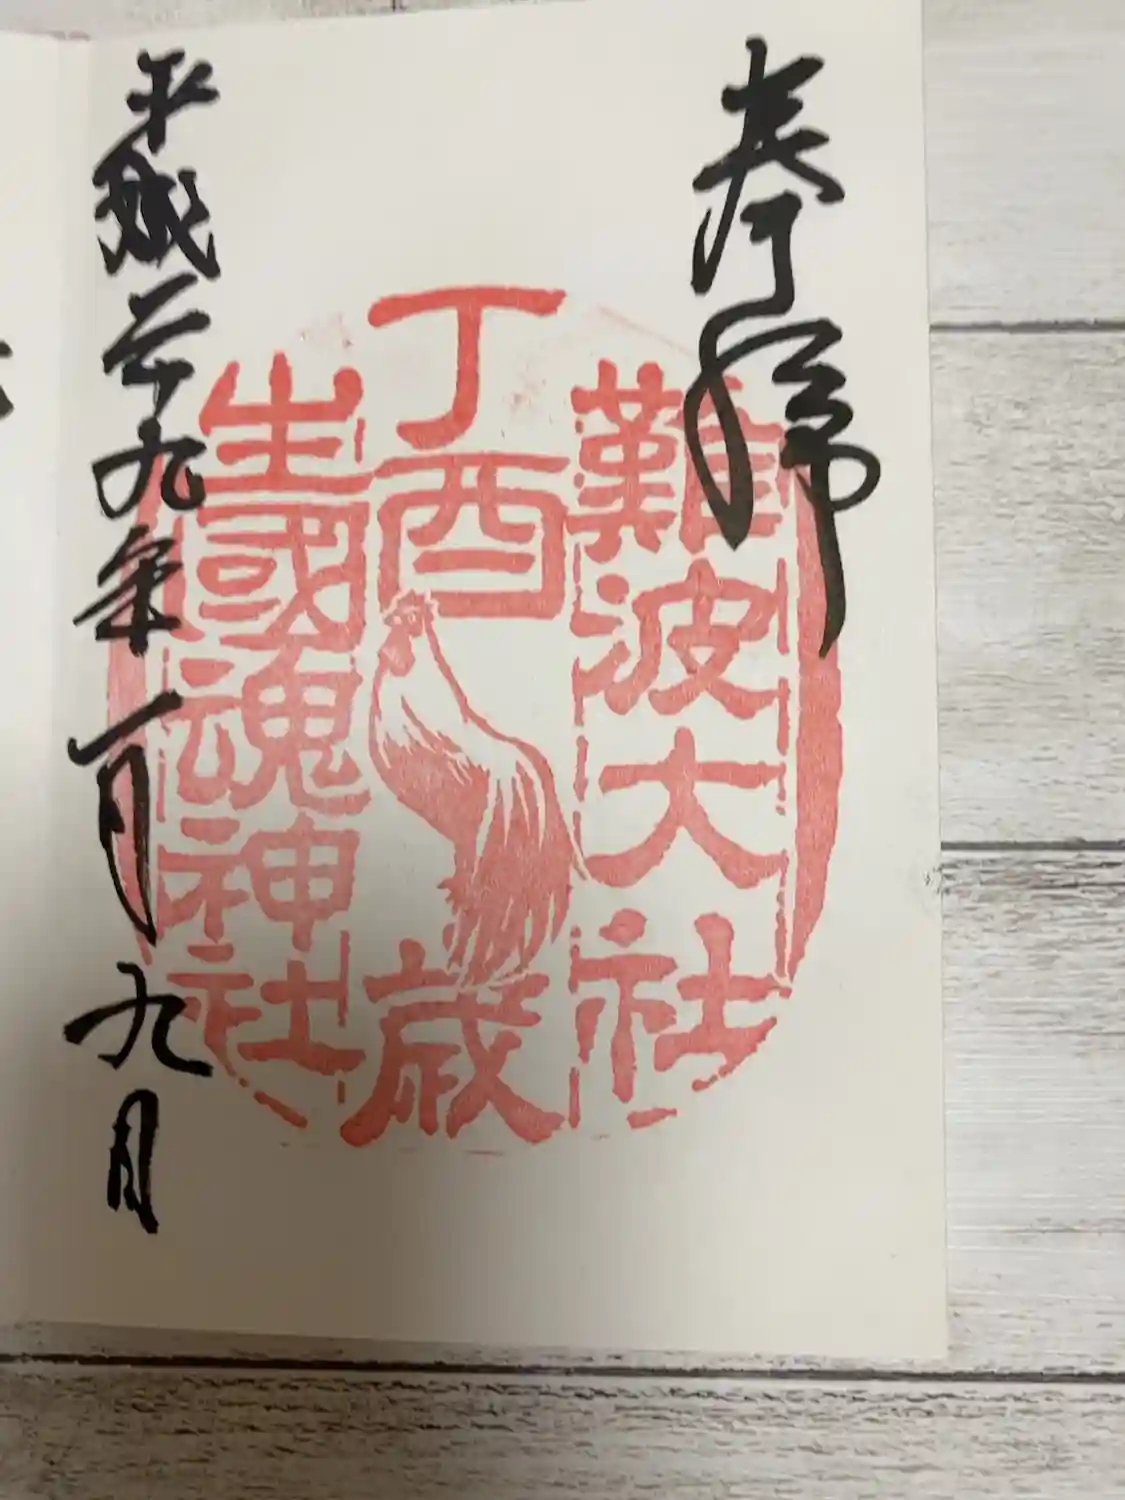 奉拝
難波大社
丁酉歳
生國魂神社
平成二九年一月九日